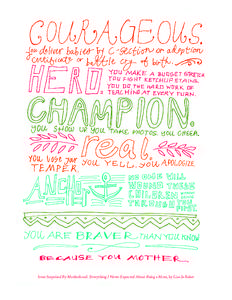 COURAGEOUS.
You deliver babies by C-section or adoption
certificate or battle cry or both.
HERO.
YOU MAKE A BUDGET STRETCH
YOU FIGHT KETCHUP STAINS
YOU DO THE HARD WORK OF
TEACHING AT EVERY TURN.
CHAMPION.
YOU SHOW UP YOU TAKE PHOTOS YOU CHEER
real.
YOU LOSE YOUR
TEMPER
YOU YELL. YOU APOLOGIZE
ANCHOR
NO ONE WILL
CHILDREN
YOU ARE BRAVER THAN YOU KNOW
BECAUSE YOU MOTHER.
from Surprised By Motherhood: Everything I Never Expected About Being a Mom, by Lisa-Jo Baker